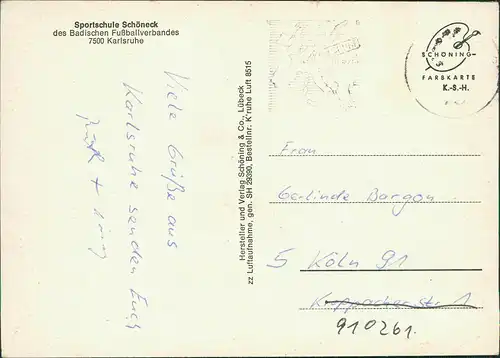 Sportschule Schöneck
des Badischen Fußballverbandes
7500 Karlsruhe
Viele Grüße aus
Karlsruhe senden Euch
Hersteller und Verlag Schöning & Co., Lübeck
zz Luftaufnahme, gen. SH 29390, Bestellnr. K'ruhe Luft 8515
SCHÖNING-
FARBKARTE
K.-S.-H.
Frau
Gerlinde Bargon
5 Köln 91
Kroppacher Str. 1
910261.